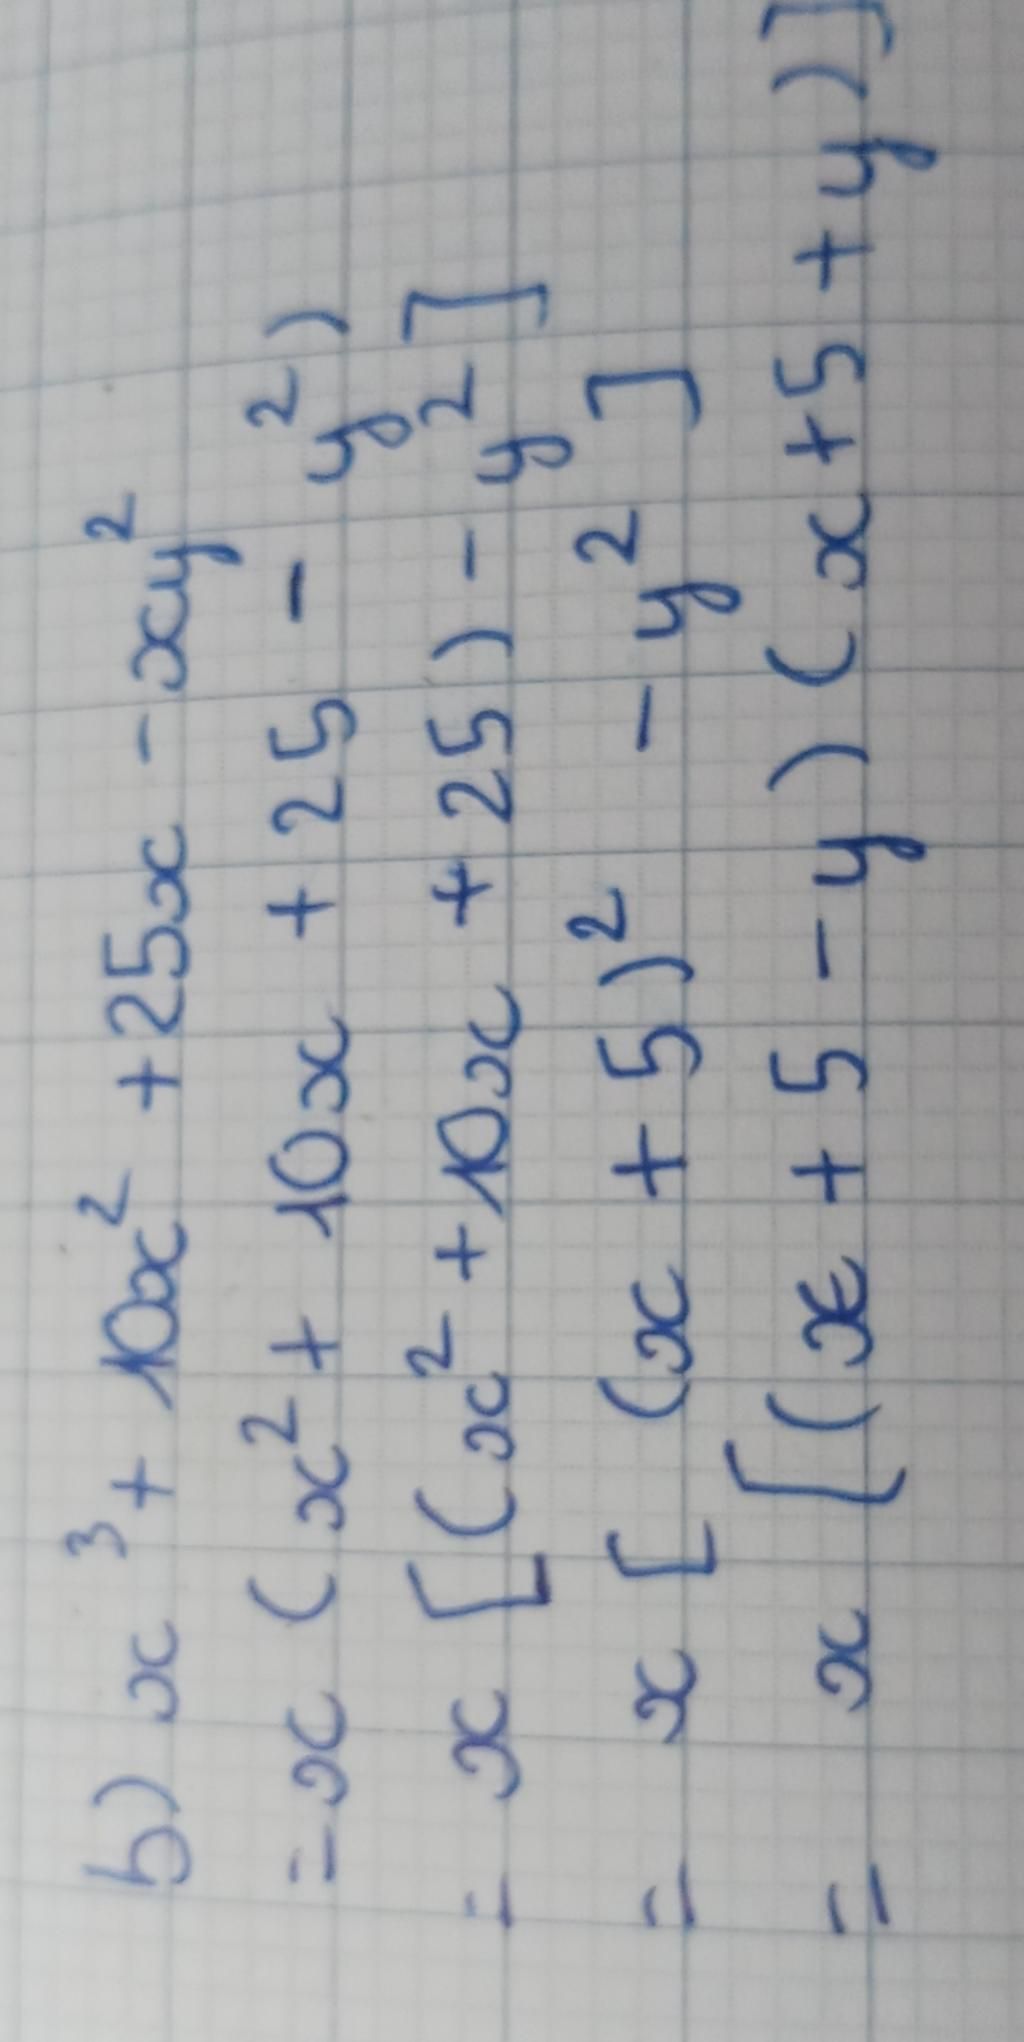 b) x³ + 10x² + 25x - xy²
= x (x² + 10x + 25 - y²)
= x [(x² + 10x + 25) - y²]
= x [(x + 5)² - y²]
= x [(x + 5 - y) (x + 5 + y)]